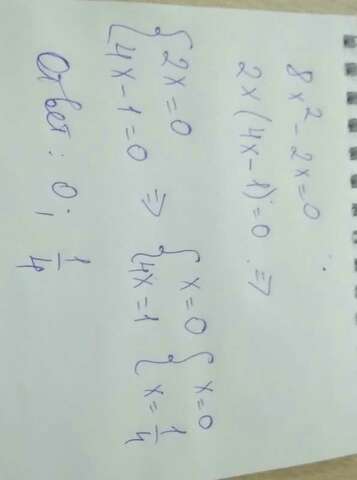 8x² - 2x = 0
2x (4x - 1) = 0 ⇒
{ 2x = 0 ⇒ { x = 0 { x = 0
{ 4x - 1 = 0 { 4x = 1 { x = 1/4
Ответ: 0; 1/4